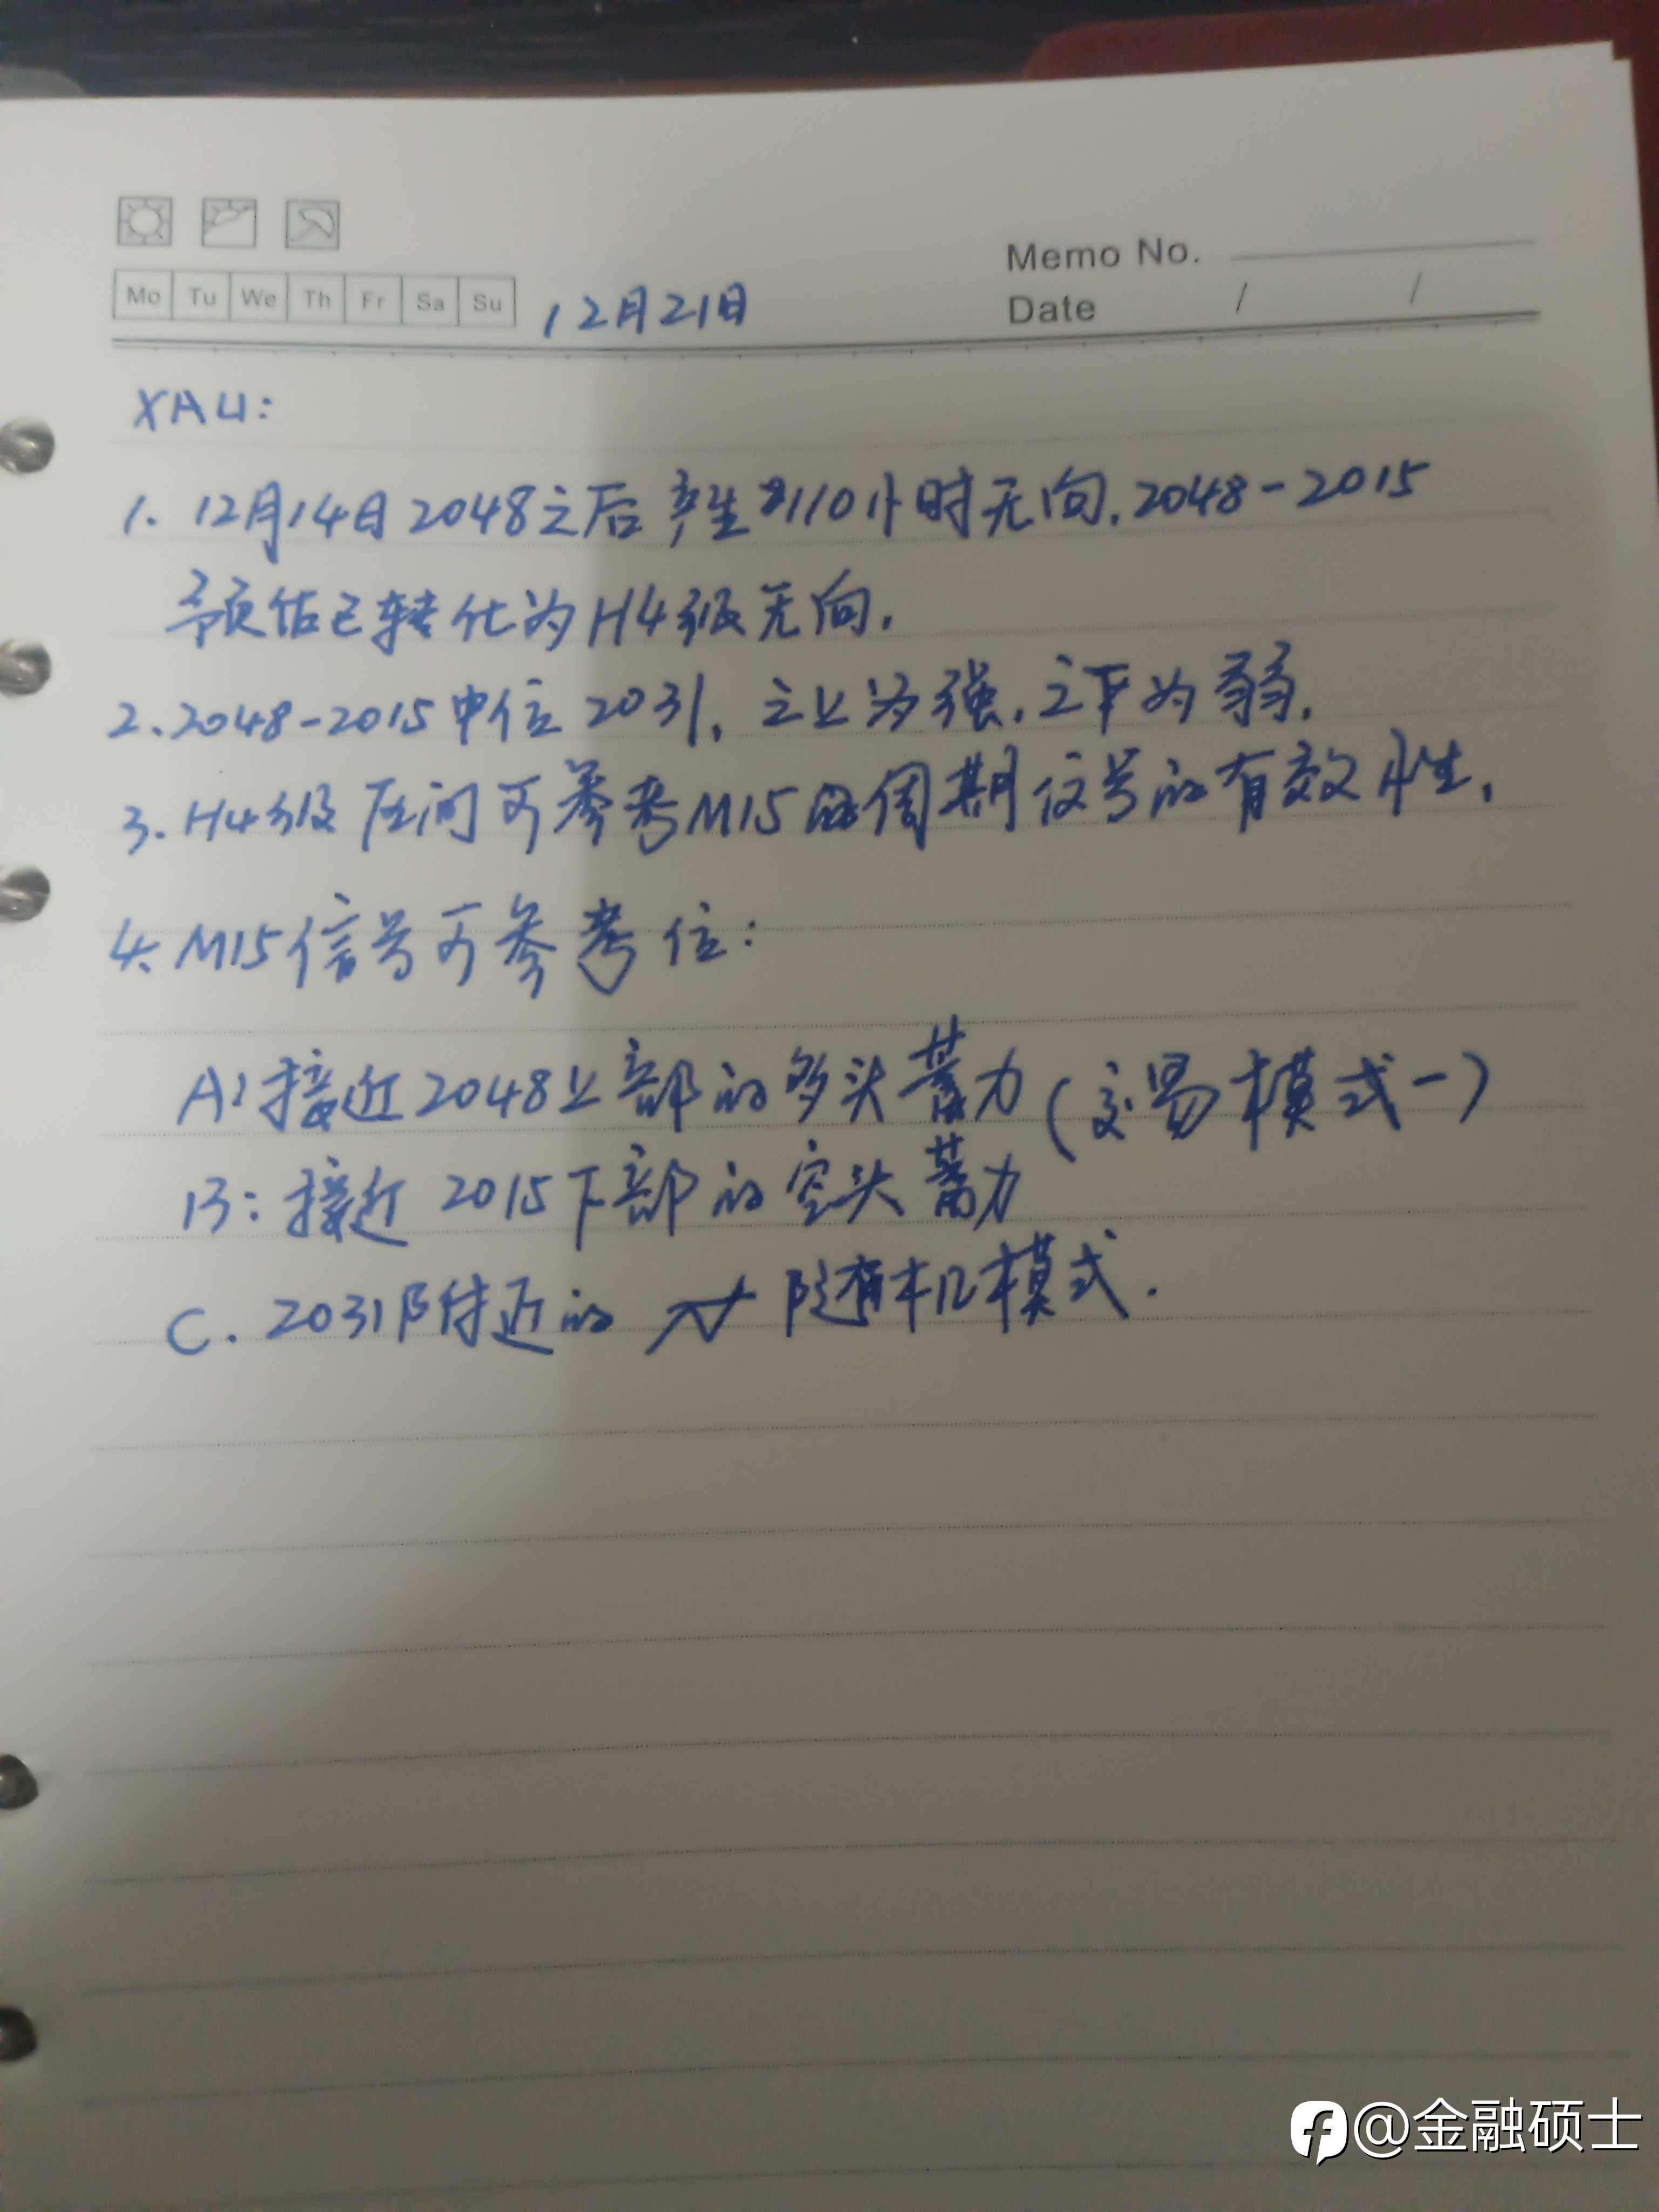 Memo No.
Mo Tu We Th Fr Sa Su 12月21日 Date / /
XAU:
1. 12月14日2048之后产生110小时无向,2048-2015
预估已转化为H4级无向.
2.2048-2015中位2031,之上为强,之下为弱.
3.H4级 区间可参考M15的周期信号的有效性.
4.M15信号可参考位:
A:接近2048上部的多头蓄力(交易模式一)
B:接近2015下部的空头蓄力
C.2031附近的 随机模式.
@金融硕士